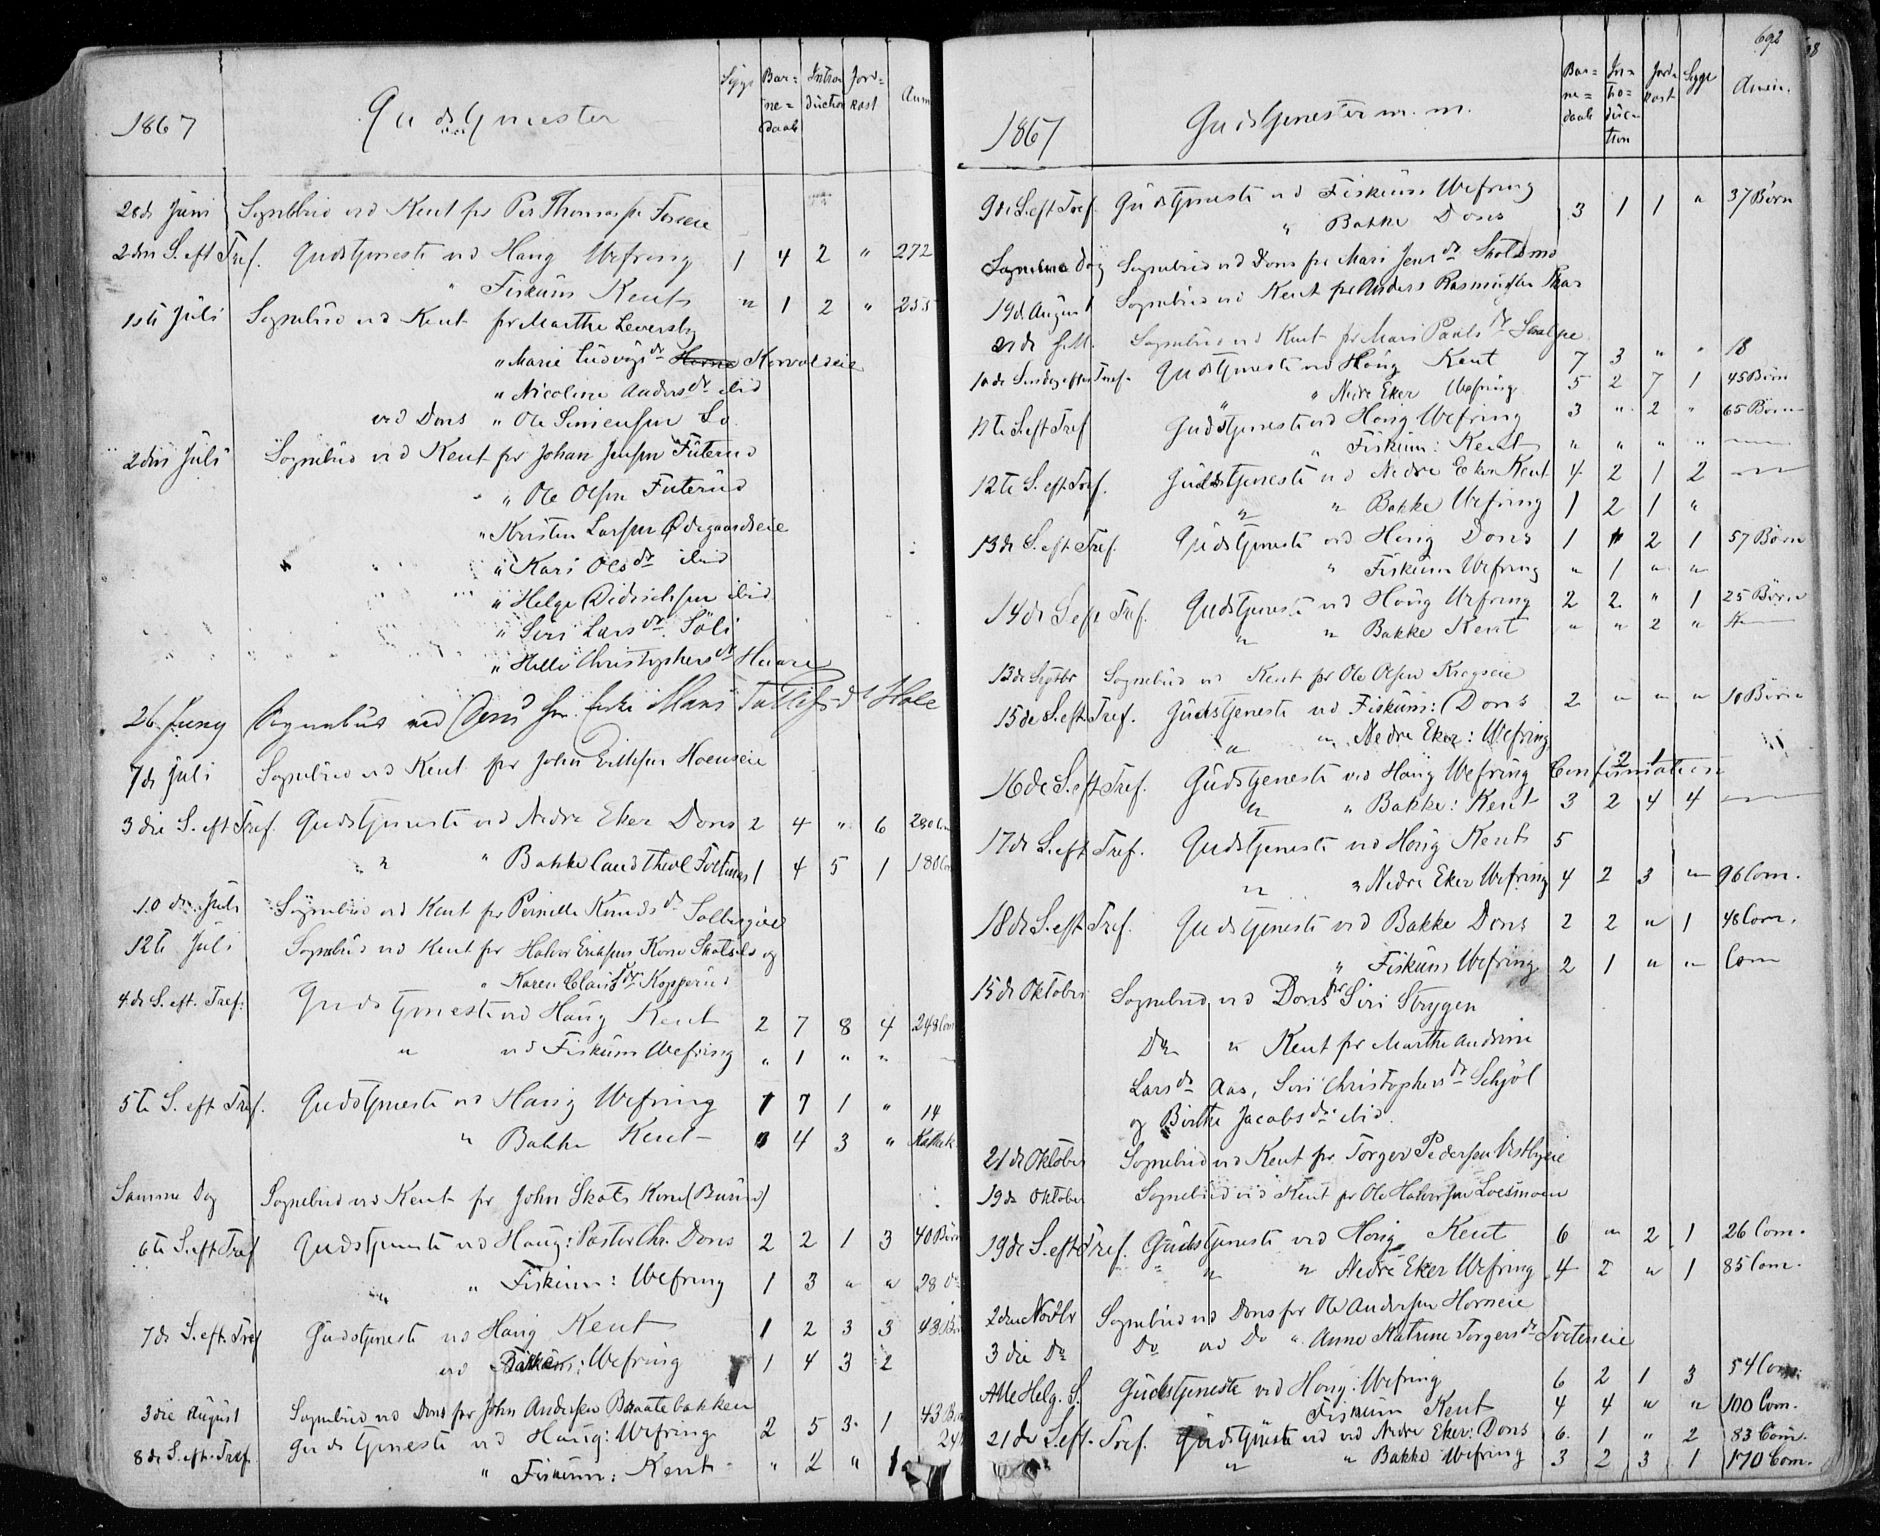 1867 Gudstjenester Syge Barnedaab Introduction Jordkast Anm
28de Juni Sognebud ved Kent for Per Thomas
2den S. eft Tref. Gudstjeneste ved Haug Wefring 1 4 2 " 272
" Fiskum Kent " 1 2 " 255
1ste Juli Sognebud ved Kent for Marthe Leversby
" Marie Ludvigsdr Horne Horvoldeie
" Nicoline Andersdr ibid
ved Dons " Ole Simensen
2den Juli Sognebud ved Kent for Johan Jensen Futerud
" Ole Olsen Futerud
" Kristen Larsen Ødegaardseie
" Kari Olsdr ibid
" Helge Didrichsen ibid
" Siri Larsdr Söli
" Helle Christophersdr
26 Juny Sognebud ved Dons for
7de Juli Sognebud ved Kent for John Hoenseie
3die S. eft Tref. Gudstjeneste ved Nedre Eker Dons 2 4 " 6 280 Com
" " Bakke Cand Theol 1 4 5 1 180 Com
10de Juli Sognebud ved Kent for Pernille Knudsdr
12te Juli Sognebud ved Kent for Halvor Eriksens Kone og
" Karen Clausdr Kopperud
4de S. eft. Tref. Gudstjeneste ved Haug Kent 2 7 8 4 248 Com
" ved Fiskum Wefring " 1 " "
5te S. eft Tref. Gudstjeneste ved Haug Wefring 1 7 1 " 14
" Bakke Kent 4 3 " Kathek
Samme Dag Sognebud ved Kent for John Skots Kone (Burud)
6te S. eft Tref Gudstjeneste ved Haug: Pastor Chr. Dons 2 2 1 3 40 Börn
" " Fiskum: Wefring 1 3 " " 28 Do
7de S. eft. Tref Gudstjeneste ved Haug Kent 1 2 3 3 43 Bö
ved Bakke: Wefring 1 4 3 2
3die August Sognebud ved Dons for John Andersen Braatebakken
8de S. eft. Tref. Gudstjeneste ved Haug: Wefring 2 5 3 1 43 Bö
" Fiskum: Kent " 2 " 1
692
1867 Gudstjenester m. m. Barnedaab Introduction Jordkast Syge Anm.
9de S. eft Tref. Gudstjeneste ved Fiskum Wefring 3 1 1 " 37 Börn
" Bakke Dons
Samme Dag Sognebud ved Dons for Mari Jensdr
19de August Sognebud ved Kent for Anders Rasmussen
21de S.M. Sognebud ved Kent for Mari Paulsdr
10de Söndag efter Tref. Gudstjeneste ved Houg Kent 7 3 " " 18
" " Nedre Eker Wefring 5 2 7 1 45 Börn
11te S. eft Tref Gudstjeneste ved Houg Wefring 3 " 2 " 65 Börn
" Fiskum: Kent " " " "
12te S. eft Tref. Gudstjeneste ved Nedre Eker Kent 4 2 1 2
" " Bakke Wefring 1 2 1 "
13de S. eft. Tref. Gudstjeneste ved Houg Dons 1 " 2 1 57 Börn
" Fiskum Wefring " 1 " "
14de S. eft Tref. Gudstjeneste ved Houg Wefring 2 2 " 1 25 Börn
" " Bakke Kent " " 2 "
13de Septbr Sognebud ved Kent for Ole Olsen Kragseie
15de S. eft Tref. Gudstjeneste ved Fiskum: Dons 2 " " " 10 Börn
" " Nedre Eker: Wefring
16de S. eft Tref. Gudstjeneste ved Haug Wefring Confirmation 2 1
" " Bakke: Kent 3 2 4 4
17de S. eft Tref. Gudstjeneste ved Houg Kent 5
" " Nedre Eker Wefring 4 2 3 " 96 Com.
18de S. eft Tref. Gudstjeneste ved Bakke Dons 2 2 " 1 48 Com.
" Fiskum Wefring 2 1 " " Com
15de Oktober Sognebud ved Dons for Siri Strygen
Do " Kent for Marthe Andrine
Larsdr Aas, Siri Christophersdr Schjöl
og Birthe Jacobsdr ibid.
21de Oktober Sognebud ved Kent for Torger Pedersen Vestbyeie
19de Oktober Sognebud ved Kent for Ole Halvorsen Loesmoen
19de S. eft Tref. Gudstjeneste ved Houg Kent 6 " 2 1 26 Com.
" " " Nedre Eker Wefring 4 2 " 1 85 Com.
2den Novbr Sognebud ved Dons for Ole Andersen Horneie
3die Do Do ved Do " Anne Katrine Torgersdr Tveteneie
Alle Helg. S. Gudstjeneste ved Houg: Wefring 6 2 1 3 54 Com.
Fiskum Kent 4 4 " " 100 Com.
21de S. eft. Tref. Gudstjeneste ved ved Nedre Eker: Dons 6 1 " 2 83 Com.
" " Bakke Wefring 3 2 3 1 170 Com.